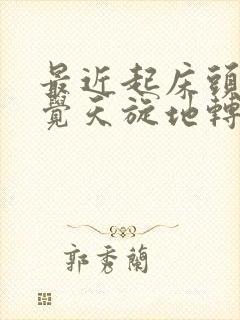 最近起床頭
覺天旋地轉
郭秀蘭